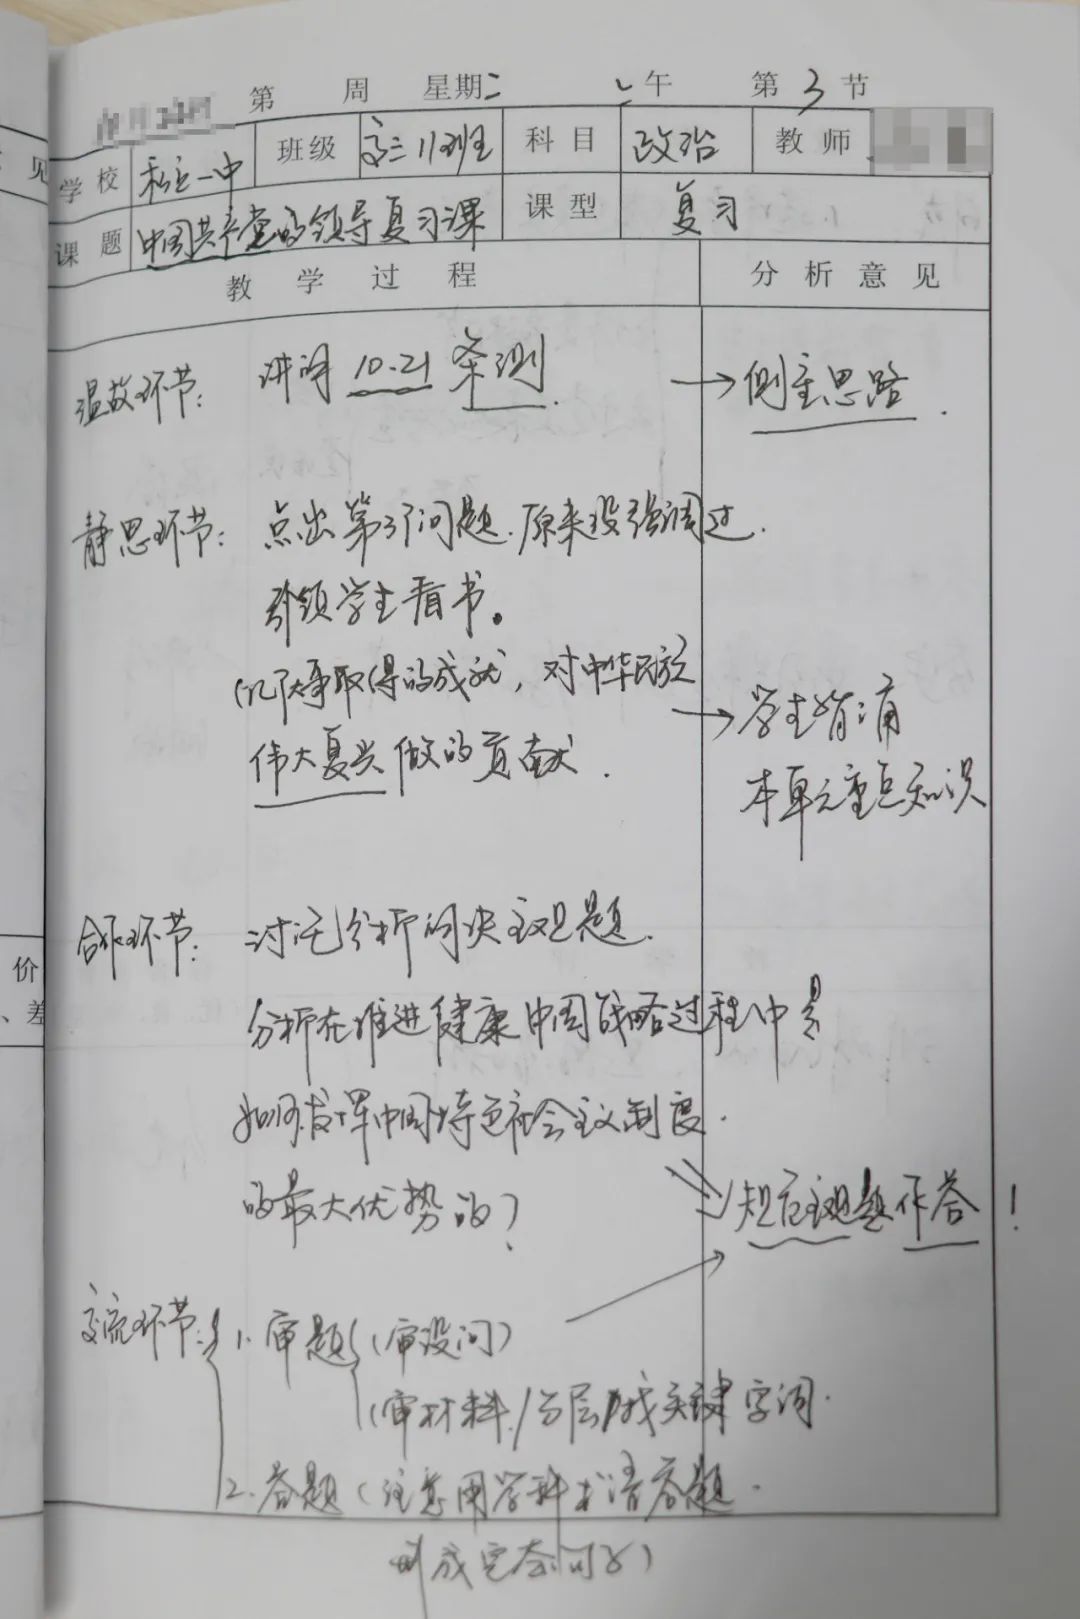 第 周 星期二 午 第3节
学校 私立一中 班级 高三11班 科目 政治 教师
课题 中国共产党的领导复习课 课型 复习
教学过程 分析意见
温故环节: 讲评 10.21 条测 → 侧重思路.
静思环节: 点出第3个问题.原来没强调过.
引领学生看书。
取得的成就,对中华民族
伟大复兴做的贡献. → 学生背诵
本单元重点知识
合作环节: 讨论分析解决主观题.
分析在推进健康中国战略过程中是
如何发挥中国特色社会主义制度.
的最大优势的?
规范主观题作答!
交流环节: 1.审题(审设问)
(审材料/分层/找关键字词.
2.答题(注意用学科术语答题.
形成完整句子)
见
价
、差